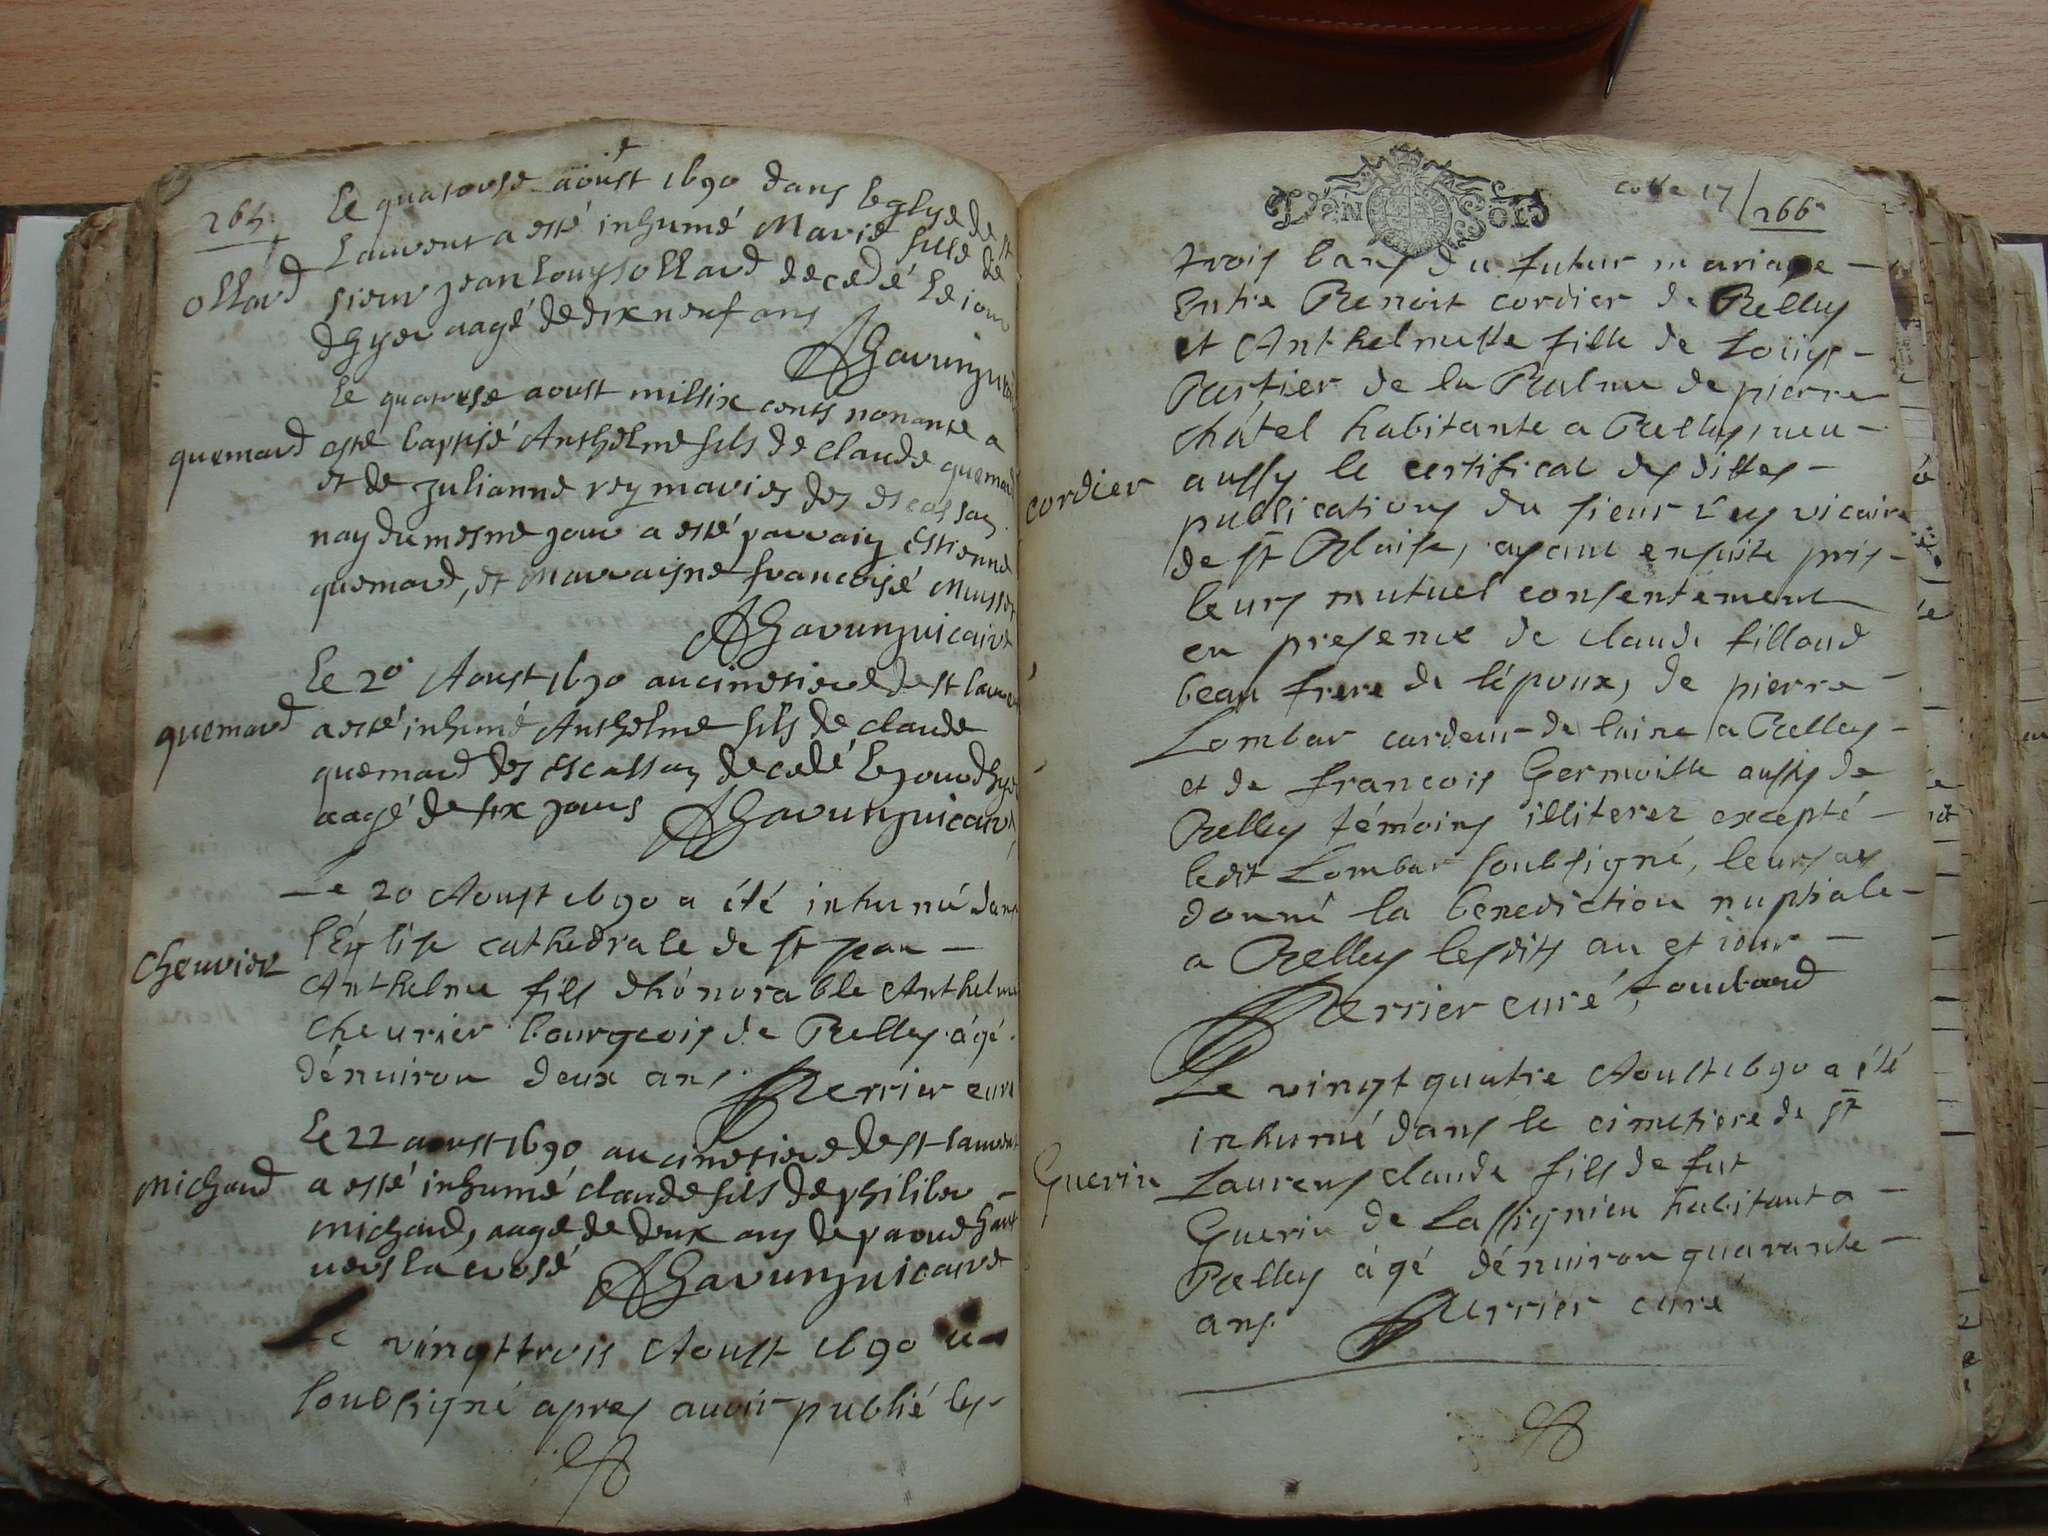 265
Le quatorse aoust 1690 dans leglise de st
Laurent a esté inhumé Marie fille de
ollard
sieur jean louys ollard decedé le jour
dhyer aagé de dix neuf ans
AGarun
Le quatorse aoust mil six cents nonante a
quemard
esté baptisé Anthelme fils de claude quemard
et de julianne rey mariez des escassay
nay du mesme jour a esté parrain Estienne
quemard, et marraisne francoise
AGarun vicaire
Le 20e Aoust 1690 au cimetiere de st laurent
quemard
a esté inhumé Anthelme fils de claude
quemard des escassay decedé le jour dhyer
aagé de six jours AGarun vicaire
Le 20 Aoust 1690 a été inhumé dans
cheuvier
l'Eglise cathedrale de st jean –
Anthelme fils d'honorable Anthelme
cheurier bourgeois de Belley âgé
d'énuiron deux ans Perrier curé
Le 22 aoust 1690 au cimetiere de st laurent
michaud
a esté inhumé claude fils de philiber
michaud, aagé de deux ans de
vers la crose AGarun vicaire
Le vingt trois Aoust 1690 
soubsigné apres auoir publié les
cotte 17 / 266
DEN SOLS
trois bans du futur mariage –
Entre Benoit cordier de Belley
et Anthelmette fille de Loüys –
Partier de la Balme de pierre
châtel habitante a Belley, veu –
cordier
aussy le certificat des dittes –
publications du sieur Rey vicaire
de st Blaise, ayant ensuite pris –
leurs mutuel consentement
en presence de claude fillond
beau frere de l'époux, de pierre –
Lombar cardeur de laine a Belley –
et de francois Germoille aussy de
Belley témoins illiterez excepté –
ledit Lombar soubsigné, leurs ay
donné la benediction nuptiale –
a Belley lesdits an et jour –
Perrier curé, Loubard
Le vingt quatre Aoust 1690 a été
inhumé dans le cimetiere de st
Guerin
Laurens claude fils de fut
Guerin de Lassignieu habitant a –
Belley âgé d'énuiron quarante –
ans. Perrier curé